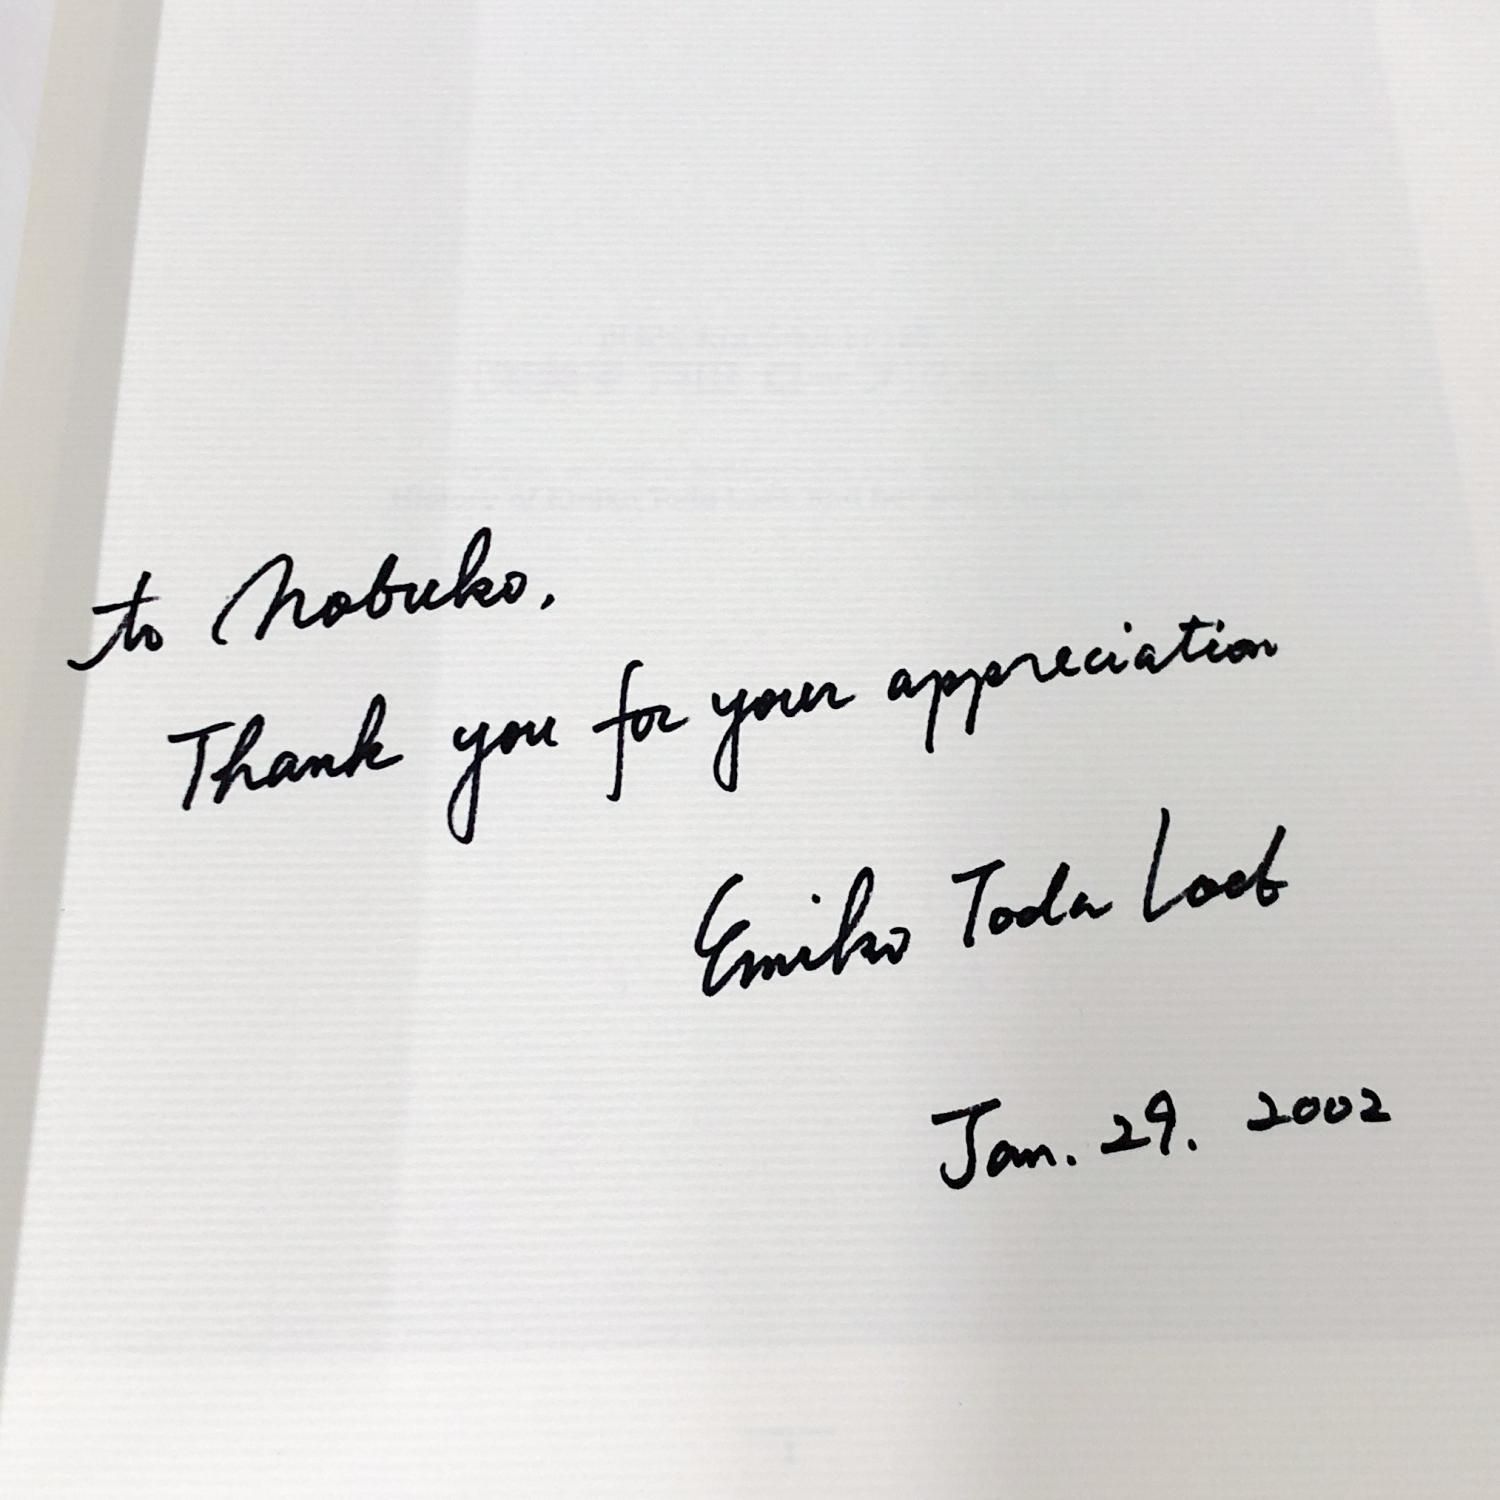 to Nobuko,
Thank you for your appreciation
Emiko Toda Loeb
Jan. 29. 2002